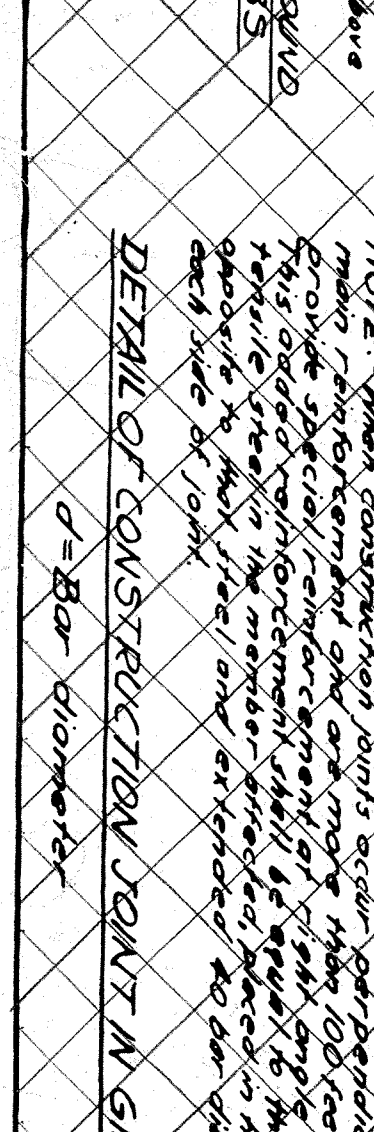 bove
OUND
NOTE: When construction joints occur perpendic
main reinforcement and are more than 100 fee
provide special reinforcement at right angle
This added reinforcement shall be equal to th
tensile steel in the member affected, placed in
opposite to that steel and extended 40 bar di
each side of joint.
DETAIL OF CONSTRUCTION JOINT IN
d = Bar diameter